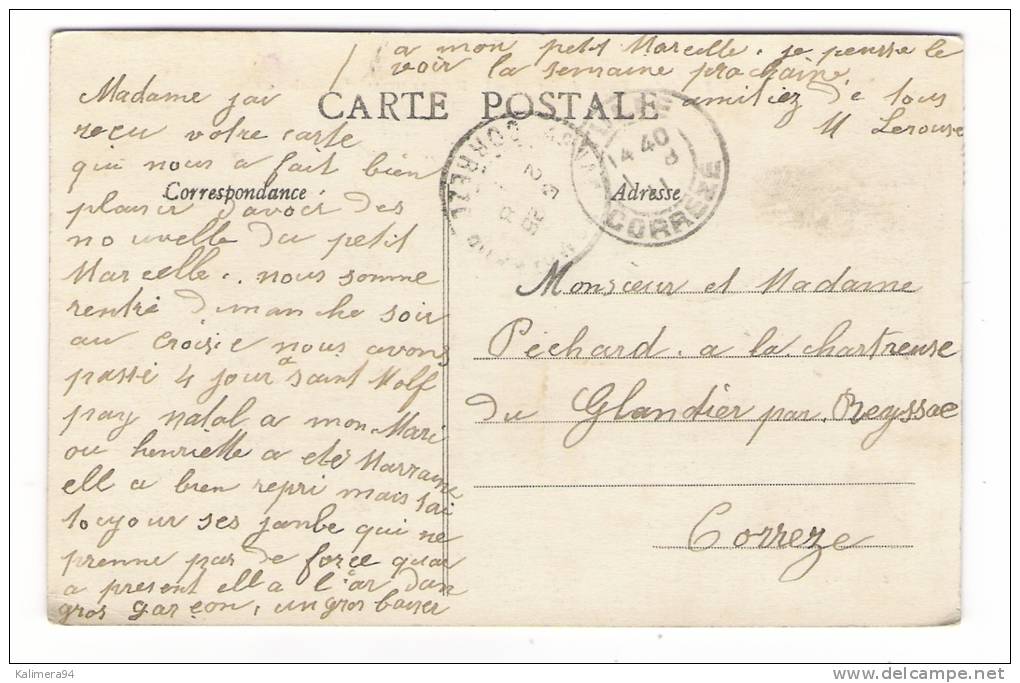 a mon petit Marcelle. je pensse le
voir la semaine prochaine
amitiez de tous
M Lerouse
CARTE POSTALE
Correspondance
Adresse
Madame jai
reçu votre carte
qui nous a fait bien
plaisir d'avoir des
nouvelle du petit
Marcelle. nous somme
rentré dimanche soir
au Croisic nous avons
passé 4 jour a saint Molf
pay natal a mon Mari
ou henriette a eté Marraine
ell a bien repri mais sai
toujour ses jambe qui ne
prenne pas de force quar
a present ell a l'ar dun
gros garçon, un gros baiser
14 40
CORREZE
CORREZE
Monsieur et Madame
Péchard. a la chartreuse
du Glandier par Beyssac
Correze
Kalimera94
www.delcampe.net